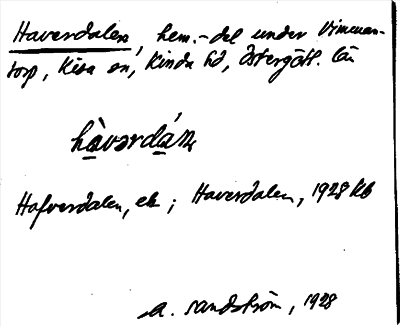 Haverdalen, hem.-del under Vimman-
torp, Kisa sn, Kinda hd, Östergötl. län
hàvərdán
Hafverdalen, ek; Haverdalen, 1928 Kb
A. Sandström, 1928